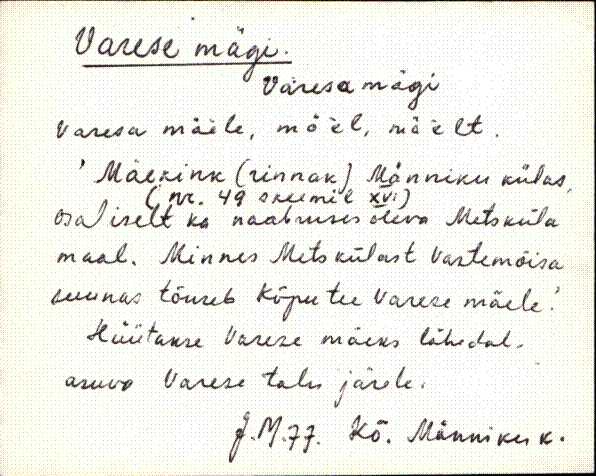 Varese mägi.
Varesa mägi
Varesa mäele, mä'el, mä'elt.
' Mäekink (rinnak) Männiku külas,
(nr. 49 skeemil XVI)
osaliselt ka naabruses oleva Metsküla
maal. Minnes Metskülast Vastemõisa
suunas tõuseb Kõpu tee Varese mäele.'
Hüütakse Varese mäeks lähedal
asuva Varese talu järele.
J. M. 77. Kõ. Männiku k.